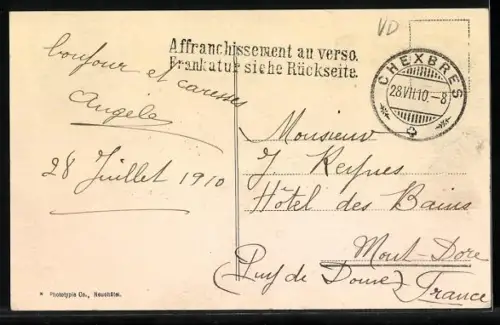 VD
Affranchissement au verso.
Frankatur siehe Rückseite.
CHEXBRES
28.VII.10.-8
bonjour et caresses
Angèle
28 Juillet 1910
Monsieur
J.
Hôtel des Bains
Mont-Dore
(Puy de Dome) France
Phototypie Co., Neuchâtel.